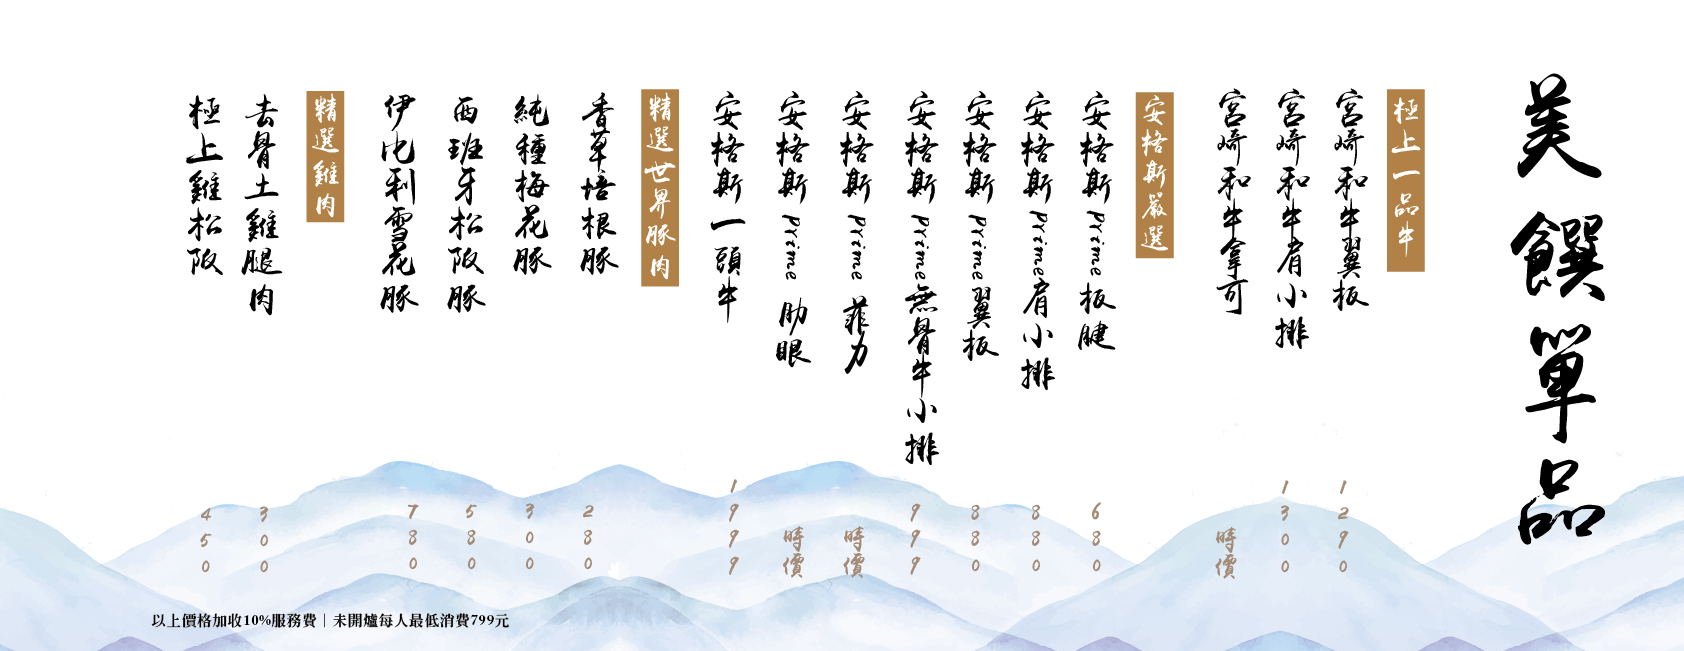 美饌單品
極上一品牛
宮崎和牛翼板 1290
宮崎和牛肩小排 1300
宮崎和牛拿可 時價
安格斯嚴選
安格斯Prime板腱 680
安格斯Prime肩小排 880
安格斯Prime翼板 880
安格斯Prime無骨牛小排 999
安格斯Prime 菲力 時價
安格斯Prime 肋眼 時價
安格斯一頭牛 1999
精選世界豚肉
香草培根豚 280
純種梅花豚 300
西班牙松阪豚 580
伊比利雪花豚 780
精選雞肉
去骨土雞腿肉 300
極上雞松阪 450
以上價格加收10%服務費｜未開爐每人最低消費799元